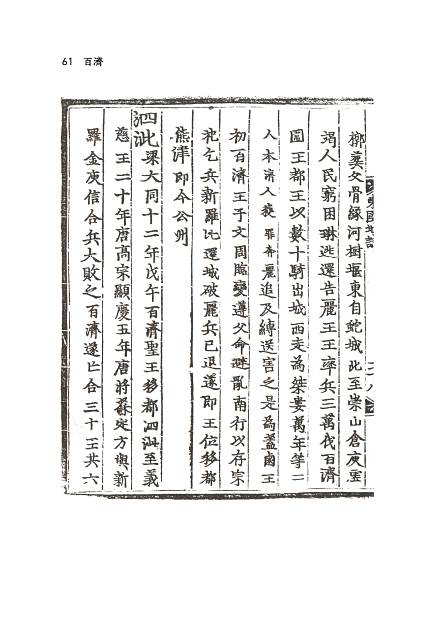 61 百濟
槨葬父骨緣河樹堰東自蛇城北至崇山倉庾虛
竭人民窮困琳逃還告麗王王率兵三萬伐百濟
圍王都王以數十騎出城西走為桀婁萬年等二
人本濟人 麗追及縛送害之是為盖鹵王
初百濟王子文周臨變遵父命避亂南行以存宗
祀乞兵新羅比還城破麗兵已退遂即王位移都
熊津即今公州
泗沘梁大同十二年戊午百濟聖王移都泗沘至義
慈王二十年唐高宗顯慶五年唐將蘇定方與新
羅金庾信合兵大敗之百濟遂亡合三十王共六